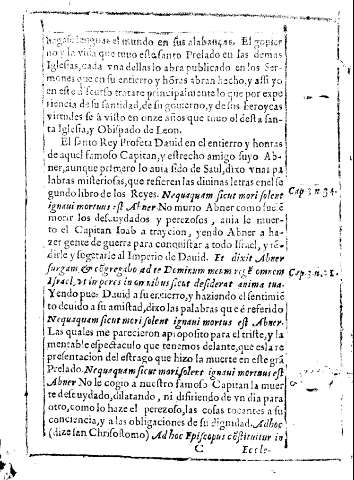 hagase lenguas el mundo en sus alabanças. El gouier
no y la vida que tuuo este santo Prelado en las demas
Iglesias, cada vna dellas lo abra publicado en los Ser
mones que en su entierro y hõras abran hecho, y assi yo
en este discurso tratare principalmente lo que por expe
riencia de su santidad, de su gouierno, y de sus heroycas
virtudes se à visto en onze años que tuuo este santa
ta Iglesia, y Obispado de Leon.
El santo Rey Profeta Dauid en el entierro y honras
de aquel famoso Capitan, y estrecho amigo suyo Ab-
ner, aunque primero lo auia sido de Saul, dixo vnas pa
labras misteriosas, que refieren las diuinas letras en el se
gundo libro de los Reyes. Nequaquam sicut mori solent
ignaui mortuus est Abner No murio Abner como suelẽ
morir los descuydados y perezosos, auia le muer-
to el Capitan Ioab a traycion, yendo Abner a ha-
zer gente de guerra para conquistar a todo Israel, y rẽ-
dirle y sogetarle al Imperio de Dauid. Et dixit Abner
surgam & cõgregabo ad te Dominum meum regẽ omnem
Israel, et imperes in omnibus sicut desiderat anima tua.
Yendo pues Dauid a su entierro, y haziendo el sentimiẽ
to deuido a su amistad, dixo las palabras que è referido
Nequaquam sicut mori solent ignaui mortuus est Abner.
Las quales me parecieron a proposito para el triste, y la
mentable espectaculo que tenemos delante, que es la re
presentacion del estrago que hizo la muerte en este grã
Prelado. Nequaquam sicut mori solent ignaui mortuus est
Abner No le cogio a nuestro famoso Capitan la muer
te descuydado, dilatando, ni difiriendo de vn dia para
otro, como lo haze el perezoso, las cosas tocantes a su
conciencia, y a las obligaciones de su dignidad. Ad hoc
(dize san Chrisostomo) Ad hoc Episcopus cõstituitur in
C Eccle-
Cap. 3. n. 34.
Cap. 3. n. 21.